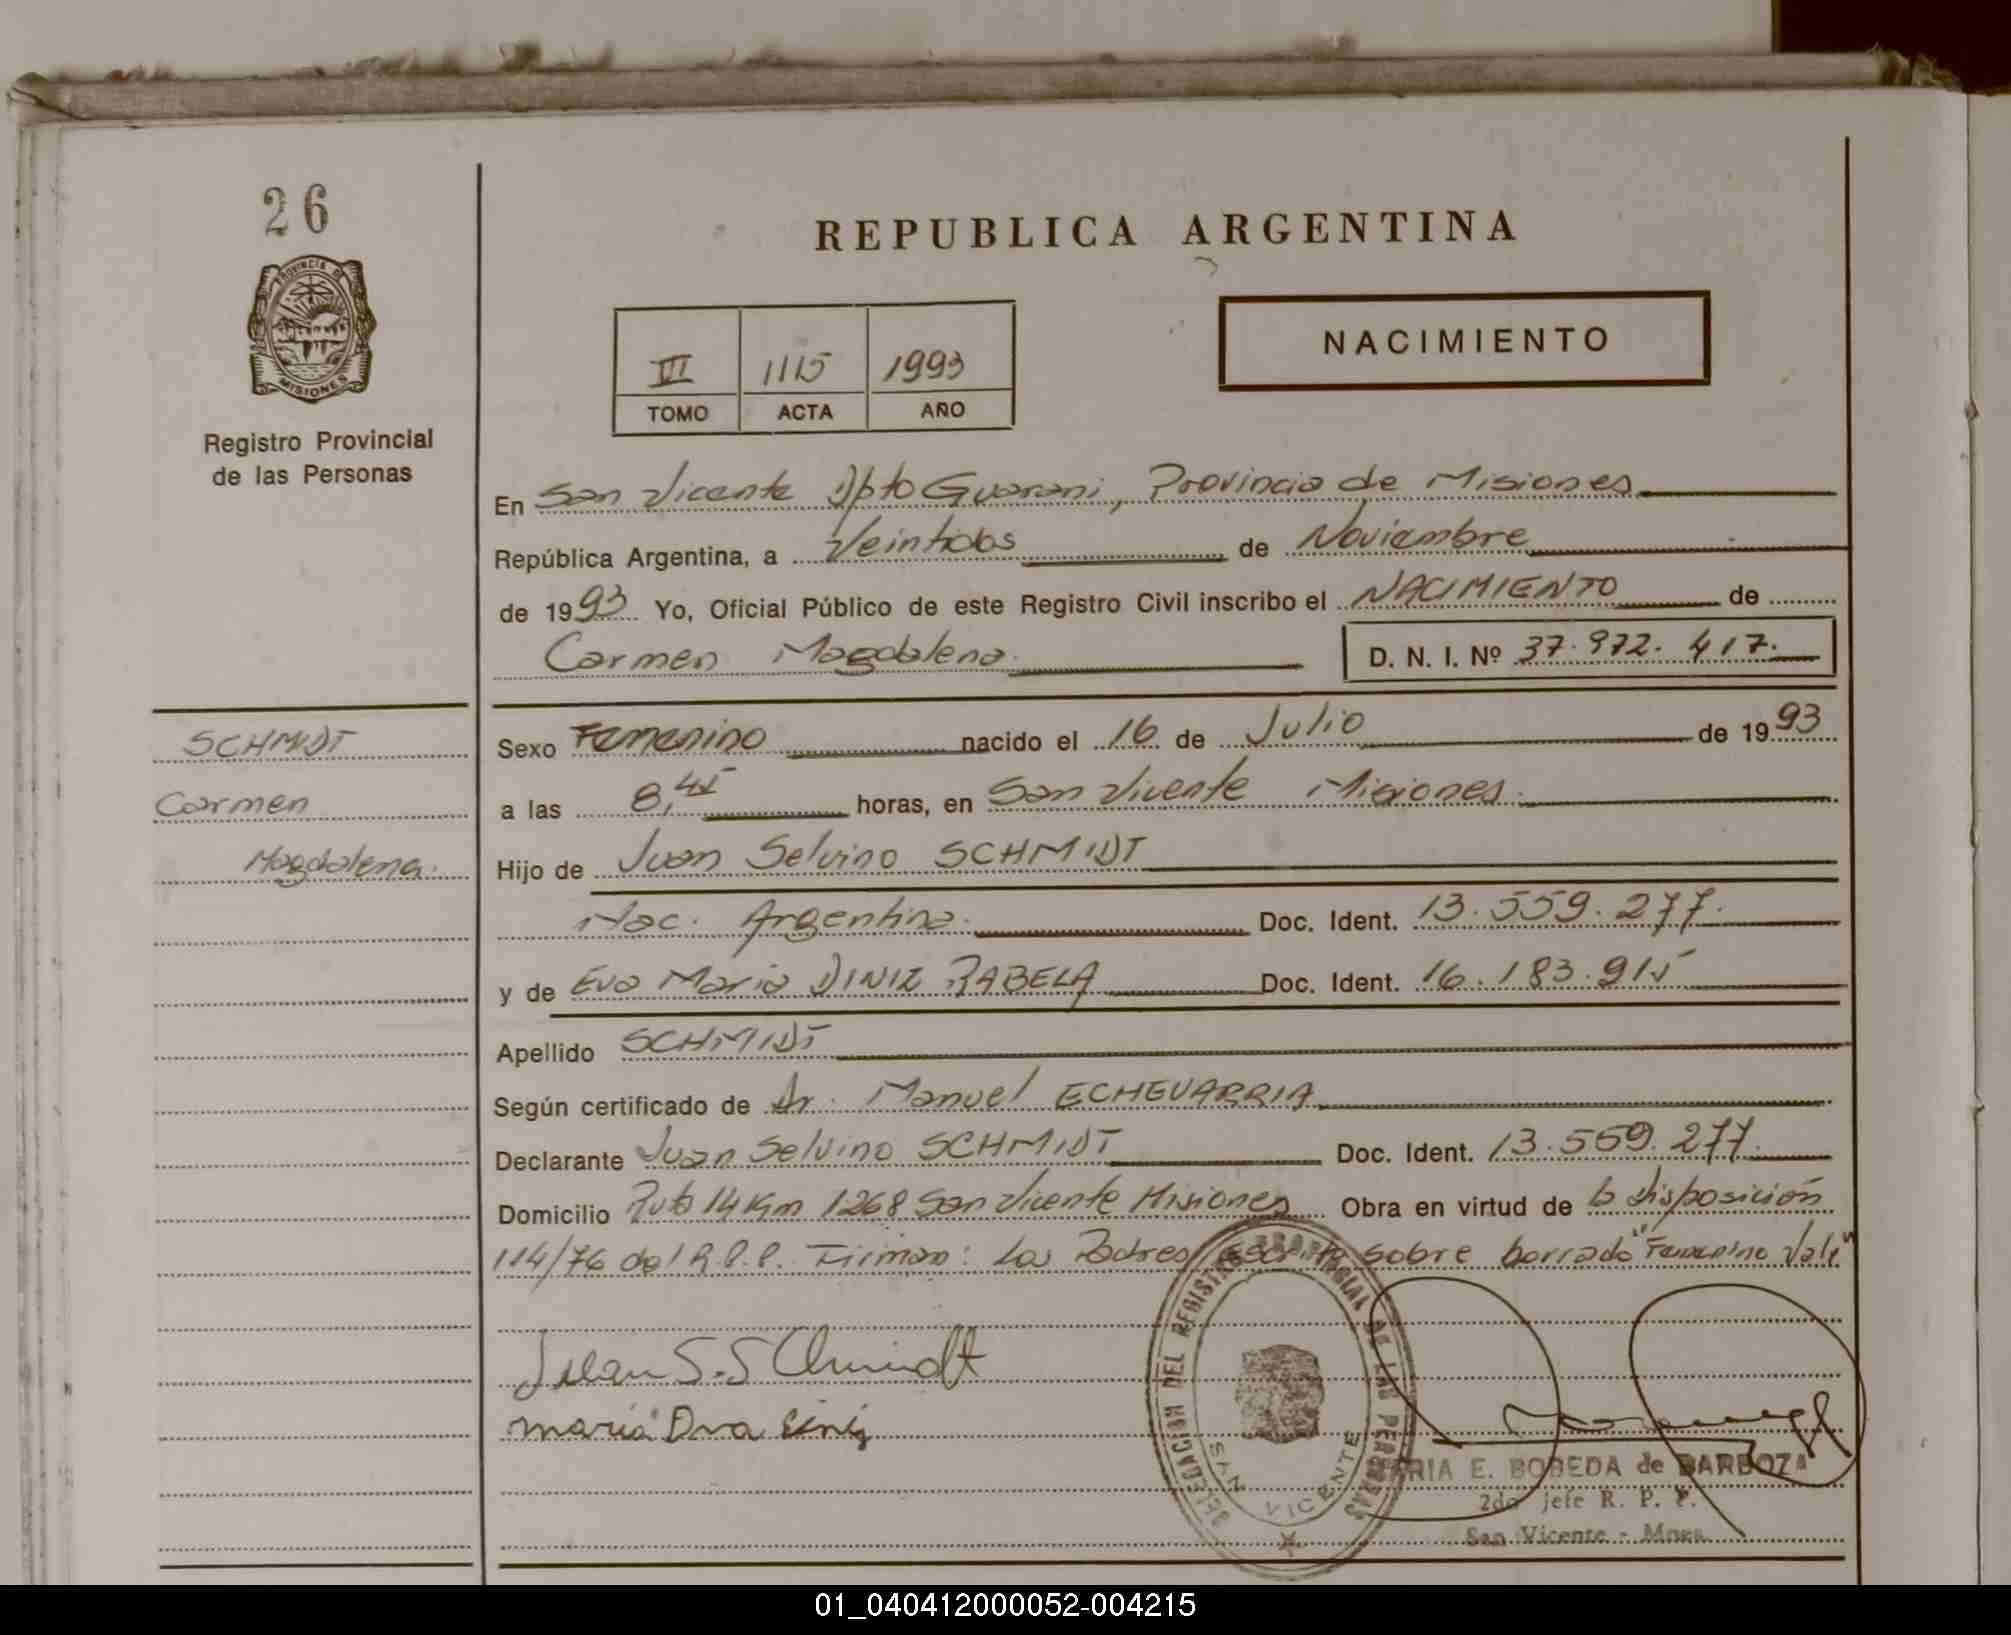 26
REPUBLICA ARGENTINA
PROVINCIA DE
MISIONES
NACIMIENTO
III 1115 1993
TOMO ACTA AÑO
Registro Provincial
de las Personas
En San Vicente Dpto Guarani, Provincia de Misiones
República Argentina, a Veintidos de Noviembre
de 1993 Yo, Oficial Público de este Registro Civil inscribo el NACIMIENTO de
Carmen Magdalena. D. N. I. Nº 37.972.417.
SCHMIDT
Carmen
Magdalena.
Sexo Femenino nacido el 16 de Julio de 1993
a las 8,45 horas, en San Vicente Misiones.
Hijo de Juan Selvino SCHMIDT
Nac. Argentina. Doc. Ident. 13.559.277.
y de Eva Maria DINIZ RABELA Doc. Ident. 16.183.915
Apellido SCHMIDT
Según certificado de Dr. Manuel ECHEVARRIA
Declarante Juan Selvino SCHMIDT Doc. Ident. 13.559.277.
Domicilio Ruta 14 Km 1268 San Vicente Misiones Obra en virtud de la disposición
114/76 del R.P.P. Firman: Los Padres escrito sobre borrado "Femenino Vale"
Juan S. Schmidt
maria Eva Diniz
DELEGACION DEL REGISTRO PROVINCIAL DE LAS PERSONAS
SAN VICENTE
MARIA E. BOBEDA de BARBOZA
2do jefe R. P. P.
San Vicente - Mnes.
01_040412000052-004215